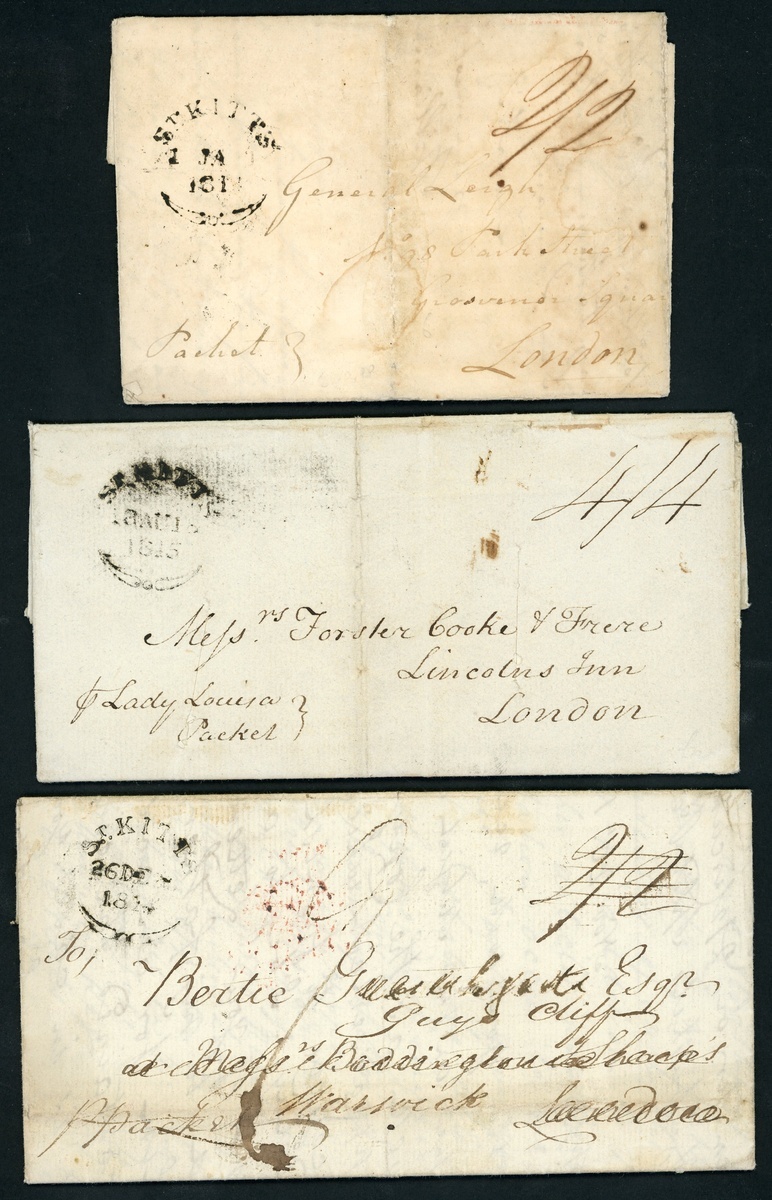 ST. KITTS
JA
181
2/2
General Leigh
No 28 Park Street
Grosvenor Squa
Packet
London
ST. KITTS
AU
1815
4/4
Messrs Forster Cooke & Frere
Lincolns Inn
London
Lady Louisa
Packet
ST. KITTS
26 DE
181
2/2
To,
Bertie Greatheed Esqr
Guys Cliff
at Messrs Boddington & Sharp's
Warwick
London
Packet